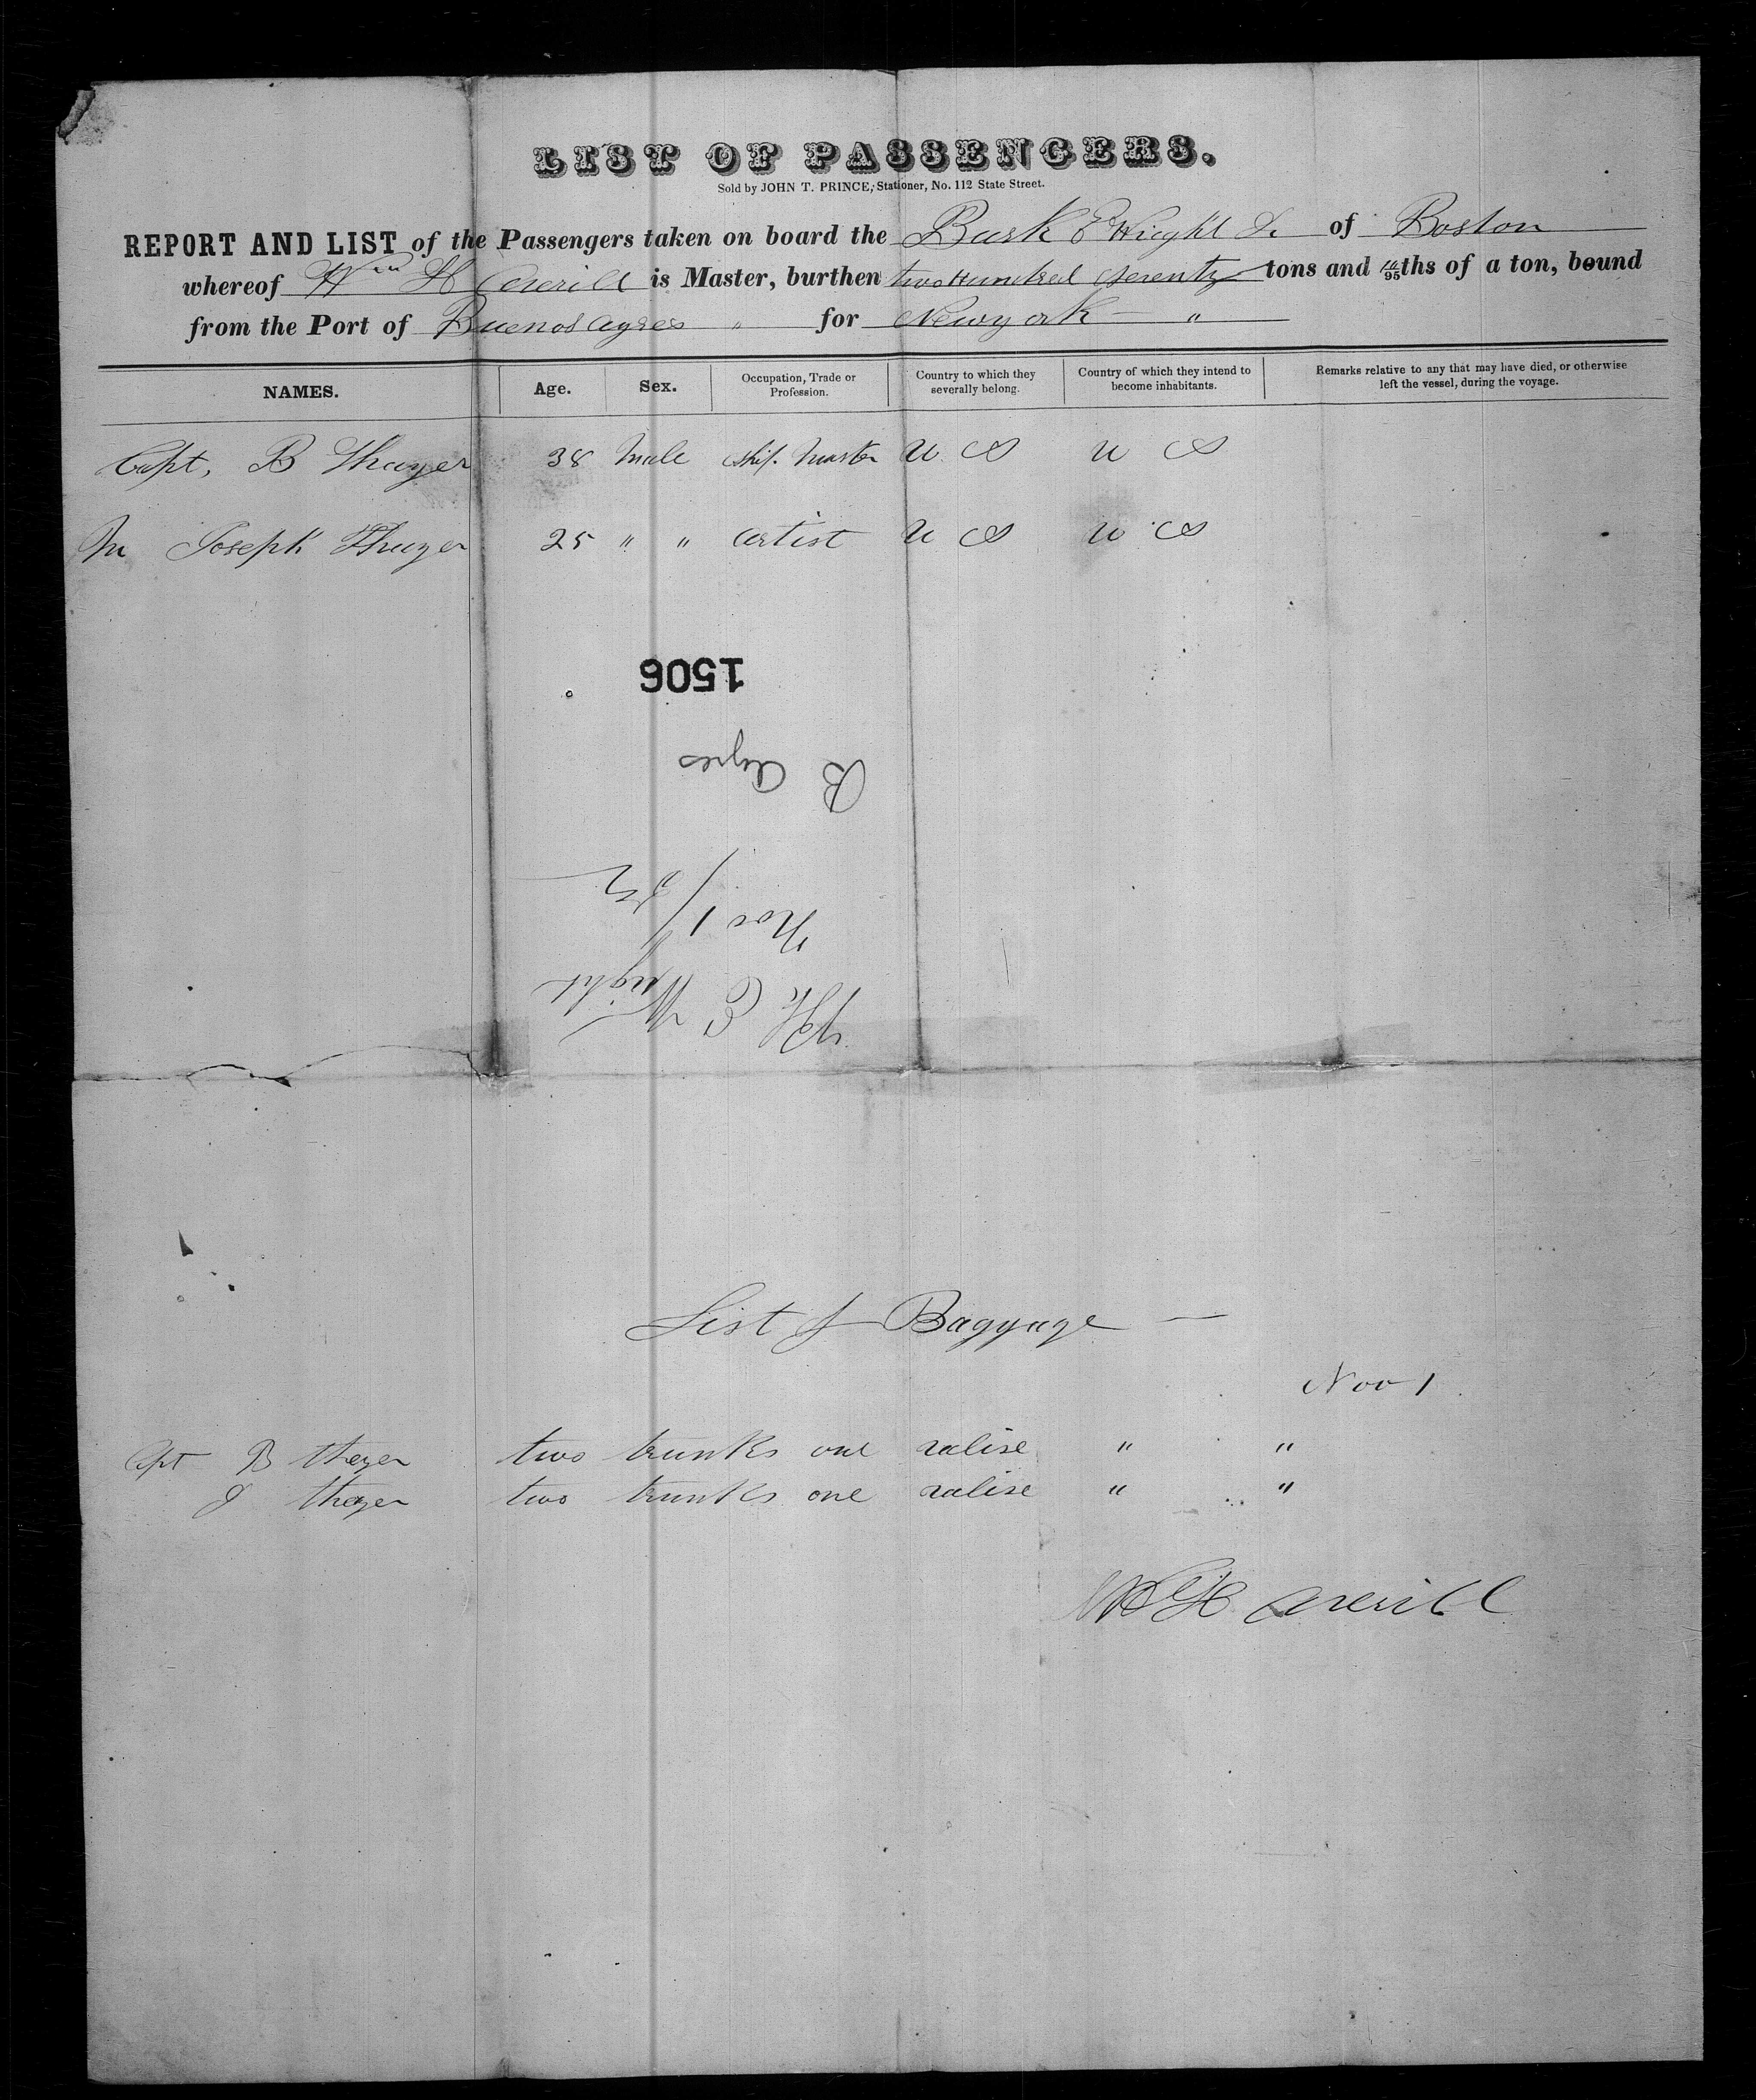 LIST OF PASSENGERS.
Sold by JOHN T. PRINCE, Stationer, No. 112 State Street.
REPORT AND LIST of the Passengers taken on board the Bark E Wright Jr of Boston
whereof Wm H Averill is Master, burthen two Hundred seventy tons and 14/95ths of a ton, bound
from the Port of Buenos Ayres " for Newyork "
NAMES. Age. Sex. Occupation, Trade or Profession. Country to which they severally belong. Country of which they intend to become inhabitants. Remarks relative to any that may have died, or otherwise left the vessel, during the voyage.
Capt, B Thayer 38 Male Ship. Master U S U S
Mr Joseph Thayer 25 " " artist U S U S
1506
B Ayres
Nov 1
E Wright
List of Baggage
Nov 1
Capt B thayer two trunks one valise " "
J thayer two trunks one valise " "
Wm H Averill